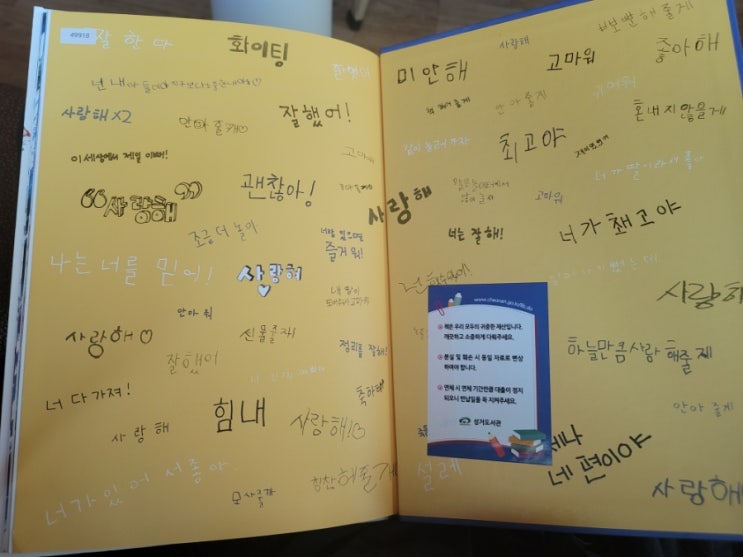 49918
잘 한 다
화이팅
사랑해x2
안아 줄게♡
잘했어!
이 세상에서 제일 이뻐!
고마워
괜찮아!
“사랑해”
조금 더 놀아
즐거워!
나는 너를 믿어!
사랑해
안아 줘
사랑해♡
선물줄자!
정리를 잘해!
잘했어
너 다 가져!
힘내
축하해
사랑해
사랑해!♡
너가 있어 서 좋아.
칭찬해줄게
뽀뽀 해 줄게
사랑해
미안해
고마워
좋아해
책 읽어 줄게
안아 줄게
고마워
혼내지 않을게
같이 놀러 가자
최고야
너가 딸이라서 좋아
고마워
사랑해
너는 잘해!
너가 채고야
사랑해
하늘만큼사랑 해줄제
안아 줄게
www.cheonan.go.kr/lib.do
책은 우리 모두의 귀중한 재산입니다.
깨끗하고 소중하게 다뤄주세요.
분실 및 훼손 시 동일 자료로 변상
하여야 합니다.
연체 시 연체 기간만큼 대출이 정지
되오니 반납일을 꼭 지켜주세요.
성거도서관
설레
네 편이야
사랑해